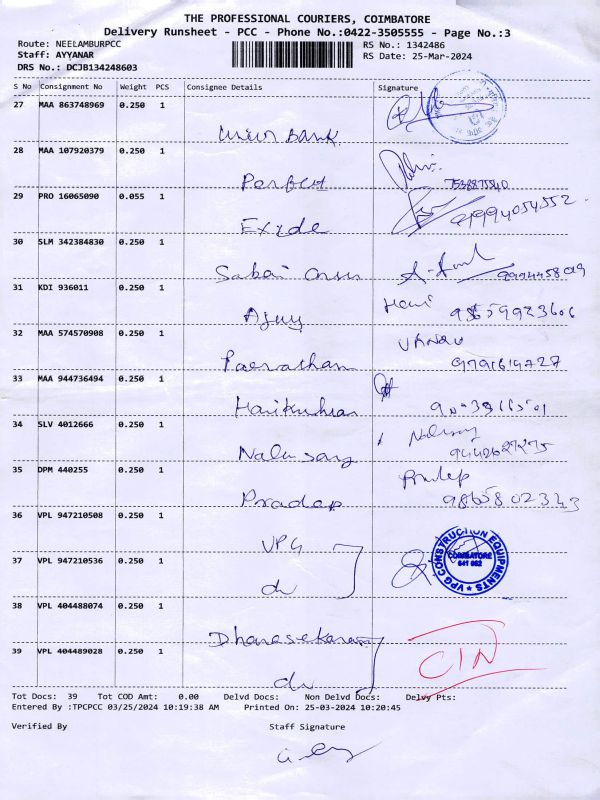 THE PROFESSIONAL COURIERS, COIMBATORE
Delivery Runsheet - PCC - Phone No.:0422-3505555 - Page No.:3
Route: NEELAMBURPCC RS No.: 1342486
Staff: AYYANAR RS Date: 25-Mar-2024
DRS No.: DCJB134248603
S No Consignment No Weight PCS Consignee Details Signature
27 MAA 863748969 0.250 1
Bank
28 MAA 107920379 0.250 1
Perfect 7538875840
29 PRO 16065090 0.055 1
Exide
30 SLM 342384830 0.250 1
Sakai
31 KDI 936011 0.250 1
Ajay Hari
32 MAA 574570908 0.250 1
9791619727
33 MAA 944736494 0.250 1
34 SLV 4012666 0.250 1
35 DPM 440255 0.250 1
Pradap 9865802343
36 VPL 947210508 0.250 1
VPG
VPG CONSTRUCTION EQUIPMENTS
COIMBATORE
641 062
37 VPL 947210536 0.250 1
do
38 VPL 404488074 0.250 1
Dhanasekaran
39 VPL 404489028 0.250 1
do
Tot Docs: 39 Tot COD Amt: 0.00 Delvd Docs: Non Delvd Docs: Delvy Pts:
Entered By :TPCPCC 03/25/2024 10:19:38 AM Printed On: 25-03-2024 10:20:45
Verified By Staff Signature